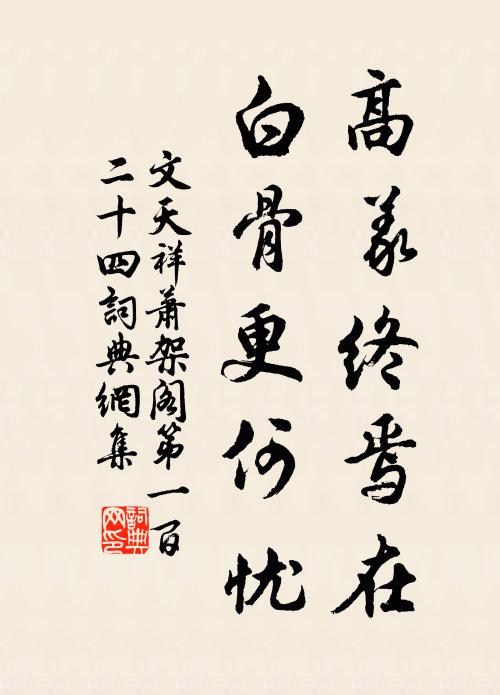 高義終焉在
白骨更何忧
文天祥蕭架閣第一百
二十四詞典網集
詞典
网印